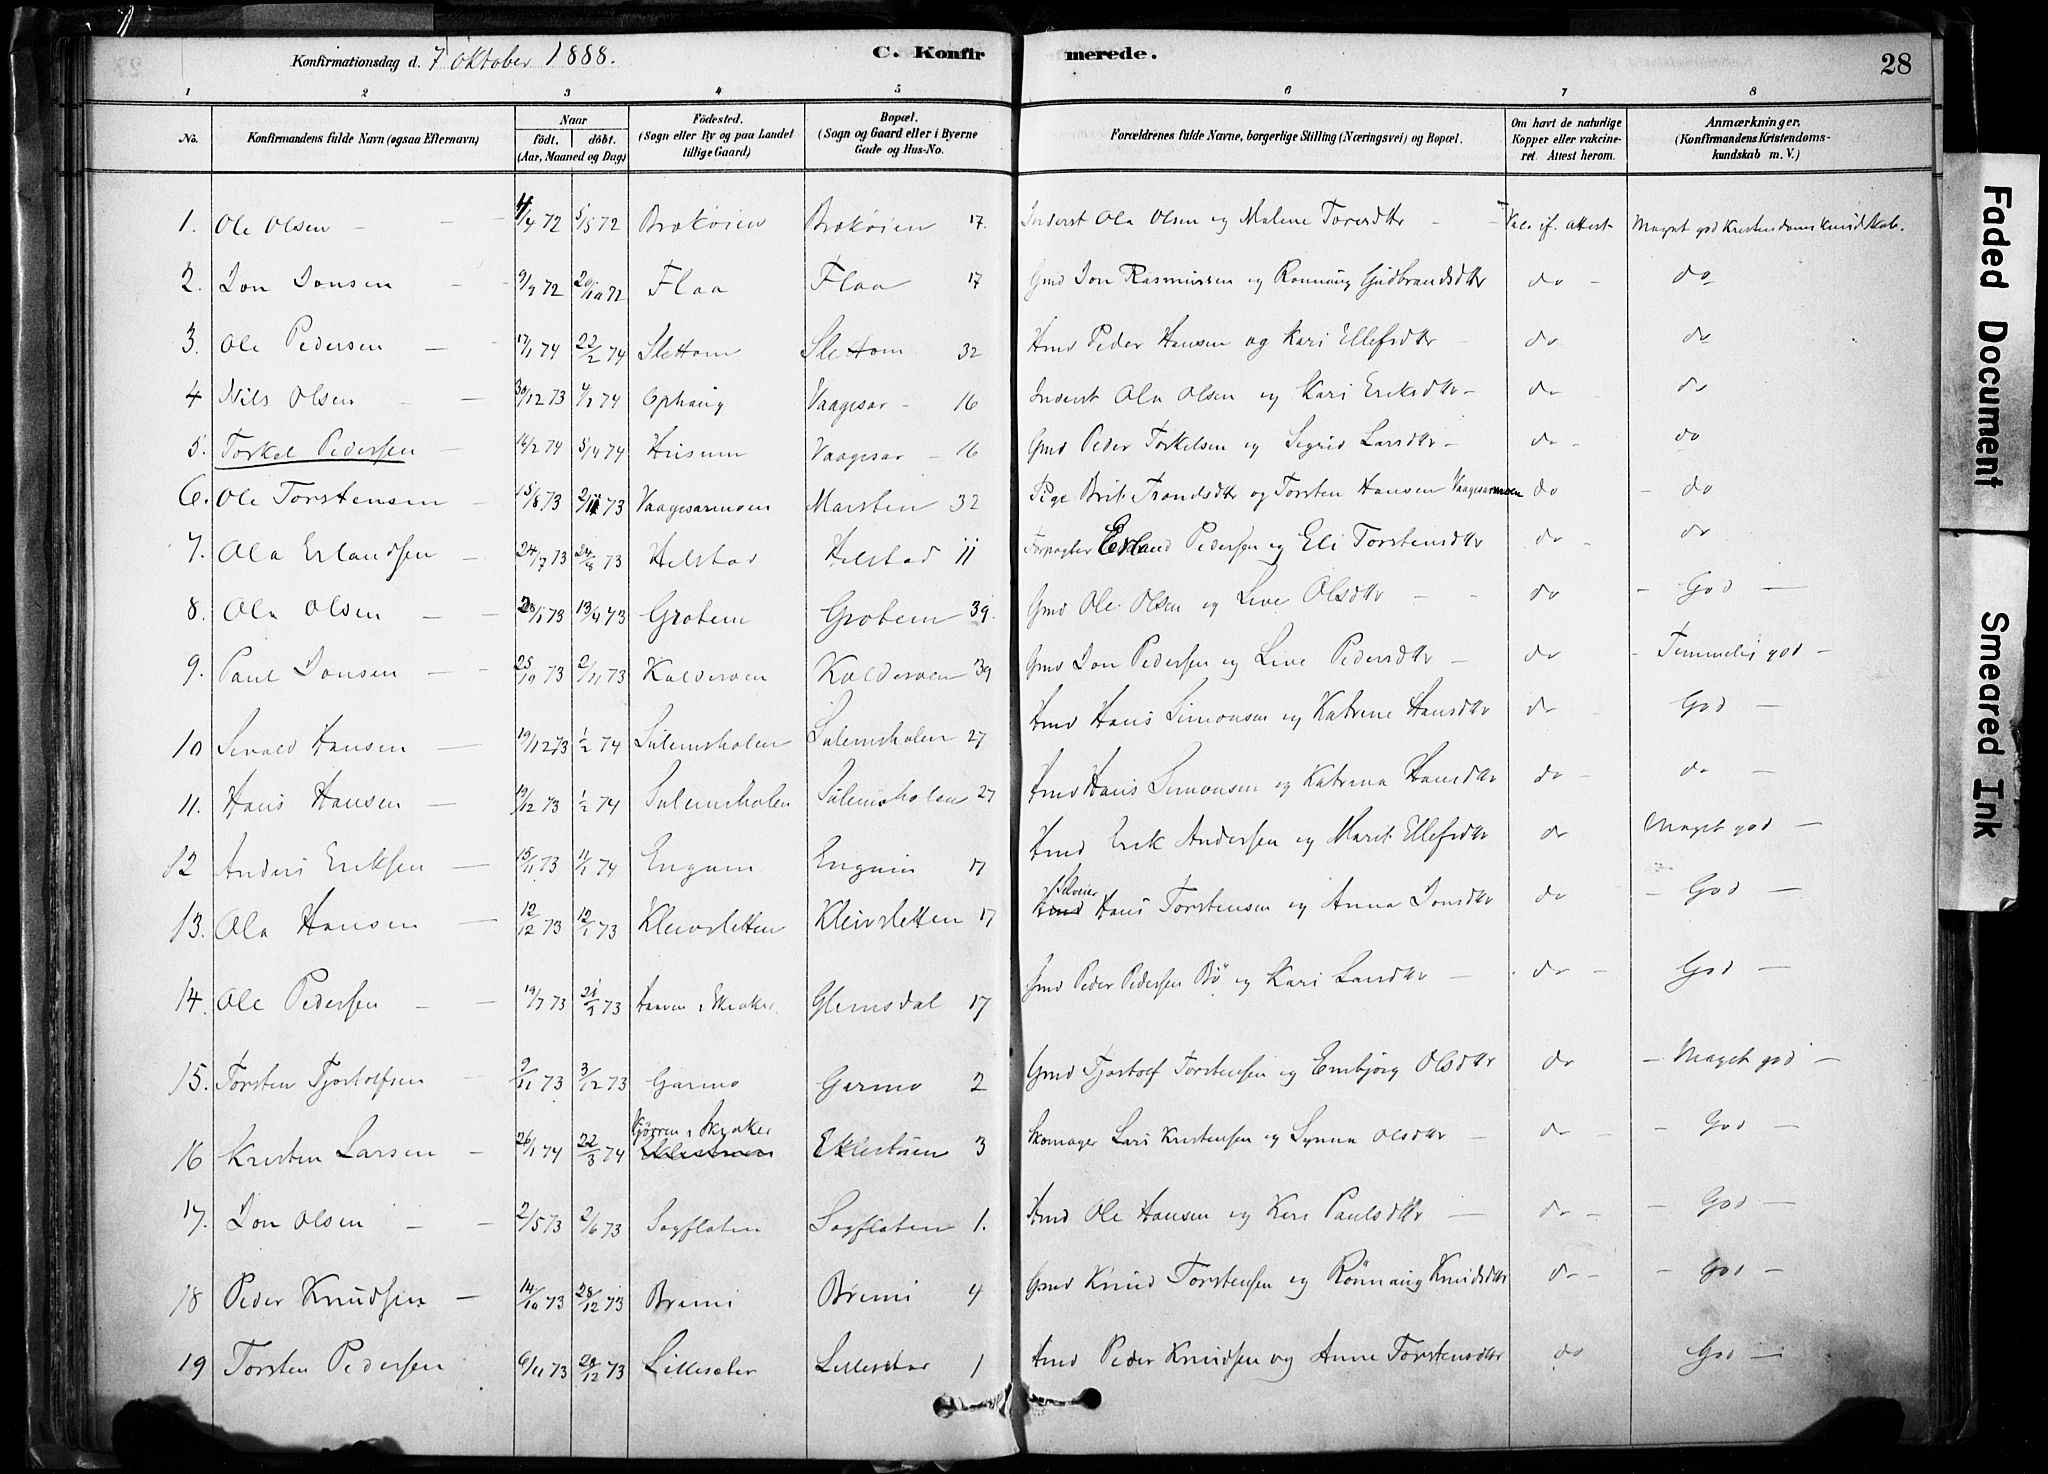 Konfirmationsdag d. 7 Oktober 1888.
C. Konfirmerede.
28
1 2 3 4 5 6 7 8
No.
Konfirmandens fulde Navn (ogsaa Efternavn)
Naar
født. døbt.
(Aar, Maaned og Dag)
Fødested.
(Sogn eller By og paa Landet tillige Gaard)
Bopæl.
(Sogn og Gaard eller i Byerne Gade og Hus-No.
Forældrenes fulde Navne, borgerlige Stilling (Næringsvei) og Bopæl.
Om havt de naturlige Kopper eller vakcineret. Attest herom.
Anmærkninger.
(Konfirmandens Kristendomskundskab m. V.)
1. Ole Olsen 72 5/5 72 Brokøien Brokøien 17. Inderst Ola Olsen og Malene Toresdtr Vac. if. attest Meget god Kristendomskundskab.
2. Jon Jonsen 9/9 72 20/10 72 Flaa Flaa 17 Gmd Jon Rasmussen og Rønnaug Gudbrandsdtr do do
3. Ole Pedersen 17/1 74 22/2 74 Slettom Slettom 32 Hmd Peder Hansen og Kari Ellefsdtr do do
4 Nils Olsen 30/12 73 74 Ophaug Vaagesar 16 Inderst Ola Olsen og Kari Eriksdtr do do
5. Torkel Pedersen 14/2 74 5/4 74 Husum Vaagesar 16 Gmd Peder Torkelsen og Sigrid Larsdtr do do
6. Ole Torstensen 15/8 73 2/11 73 Vaagesarmoen Marstein 32 Pige Brit Trondsdtr og Torsten Hansen Vaagesarmoen do do
7. Ola Erlandsen 24/7 73 24/8 73 Helstad Helstad 11 Forpagter Erland Pedersen og Eli Torstensdtr do do
8. Ola Olsen 28/1 73 13/4 73 Grotem Grotem 39. Gmd Ole Olsen og Live Olsdtr do God
9. Paul Jonsen 25/10 73 2/11 73 Kolderoen Kolderoen 39 Gmd Jon Pedersen og Live Pedersdtr do Temmelig god
10 Sivald Hansen 19/12 73 1/2 74 Sulemsholen Sulemsholen 27 Hmd Hans Simonsen og Katrine Hansdtr do God
11. Hans Hansen 19/12 73 1/2 74 Sulemsholen Sulemsholen 27 Hmd Hans Simonsen og Katrina Hansdtr do do
12 Anders Eriksen 15/11 73 11/1 74 Engum Engum 17 Hmd Erik Andersen og Marit Ellefsdtr do Meget god
13. Ola Hansen 12/12 73 12/1 73 Kleivsletten Kleivsletten 17 Selveier Hmd Hans Torstensen og Anna Jonsdtr do God
14. Ole Pedersen 19/7 73 21/9 73 i Skiaker Glemsdal 17 Gmd Peder Pedersen Bø og Kari Larsdtr do God
15. Torsten Tjostolfsen 9/11 73 3/12 73 Garmo Garmo 2 Gmd Tjostolf Torstensen og Embjørg Olsdtr do Meget god
16 Kristen Larsen 26/1 74 22/3 74 i Skiaker Eklestuen 3 Skomager Lars Kristensen og Synnu Olsdtr do God
17. Jon Olsen 2/5 73 2/6 73 Sagfloten Sagfloten 1. Hmd Ole Hansen og Kari Paulsdtr do God
18 Peder Knudsen 14/10 73 28/12 73 Bruni Bruni 4 Gmd Knud Torstensen og Rønnaug Knudsdtr do God
19 Torsten Pedersen 6/11 73 28/12 73 Lilleseter Lilleseter 1 Hmd Peder Knudsen og Anne Torstensdtr do God
Faded Document
Smeared Ink